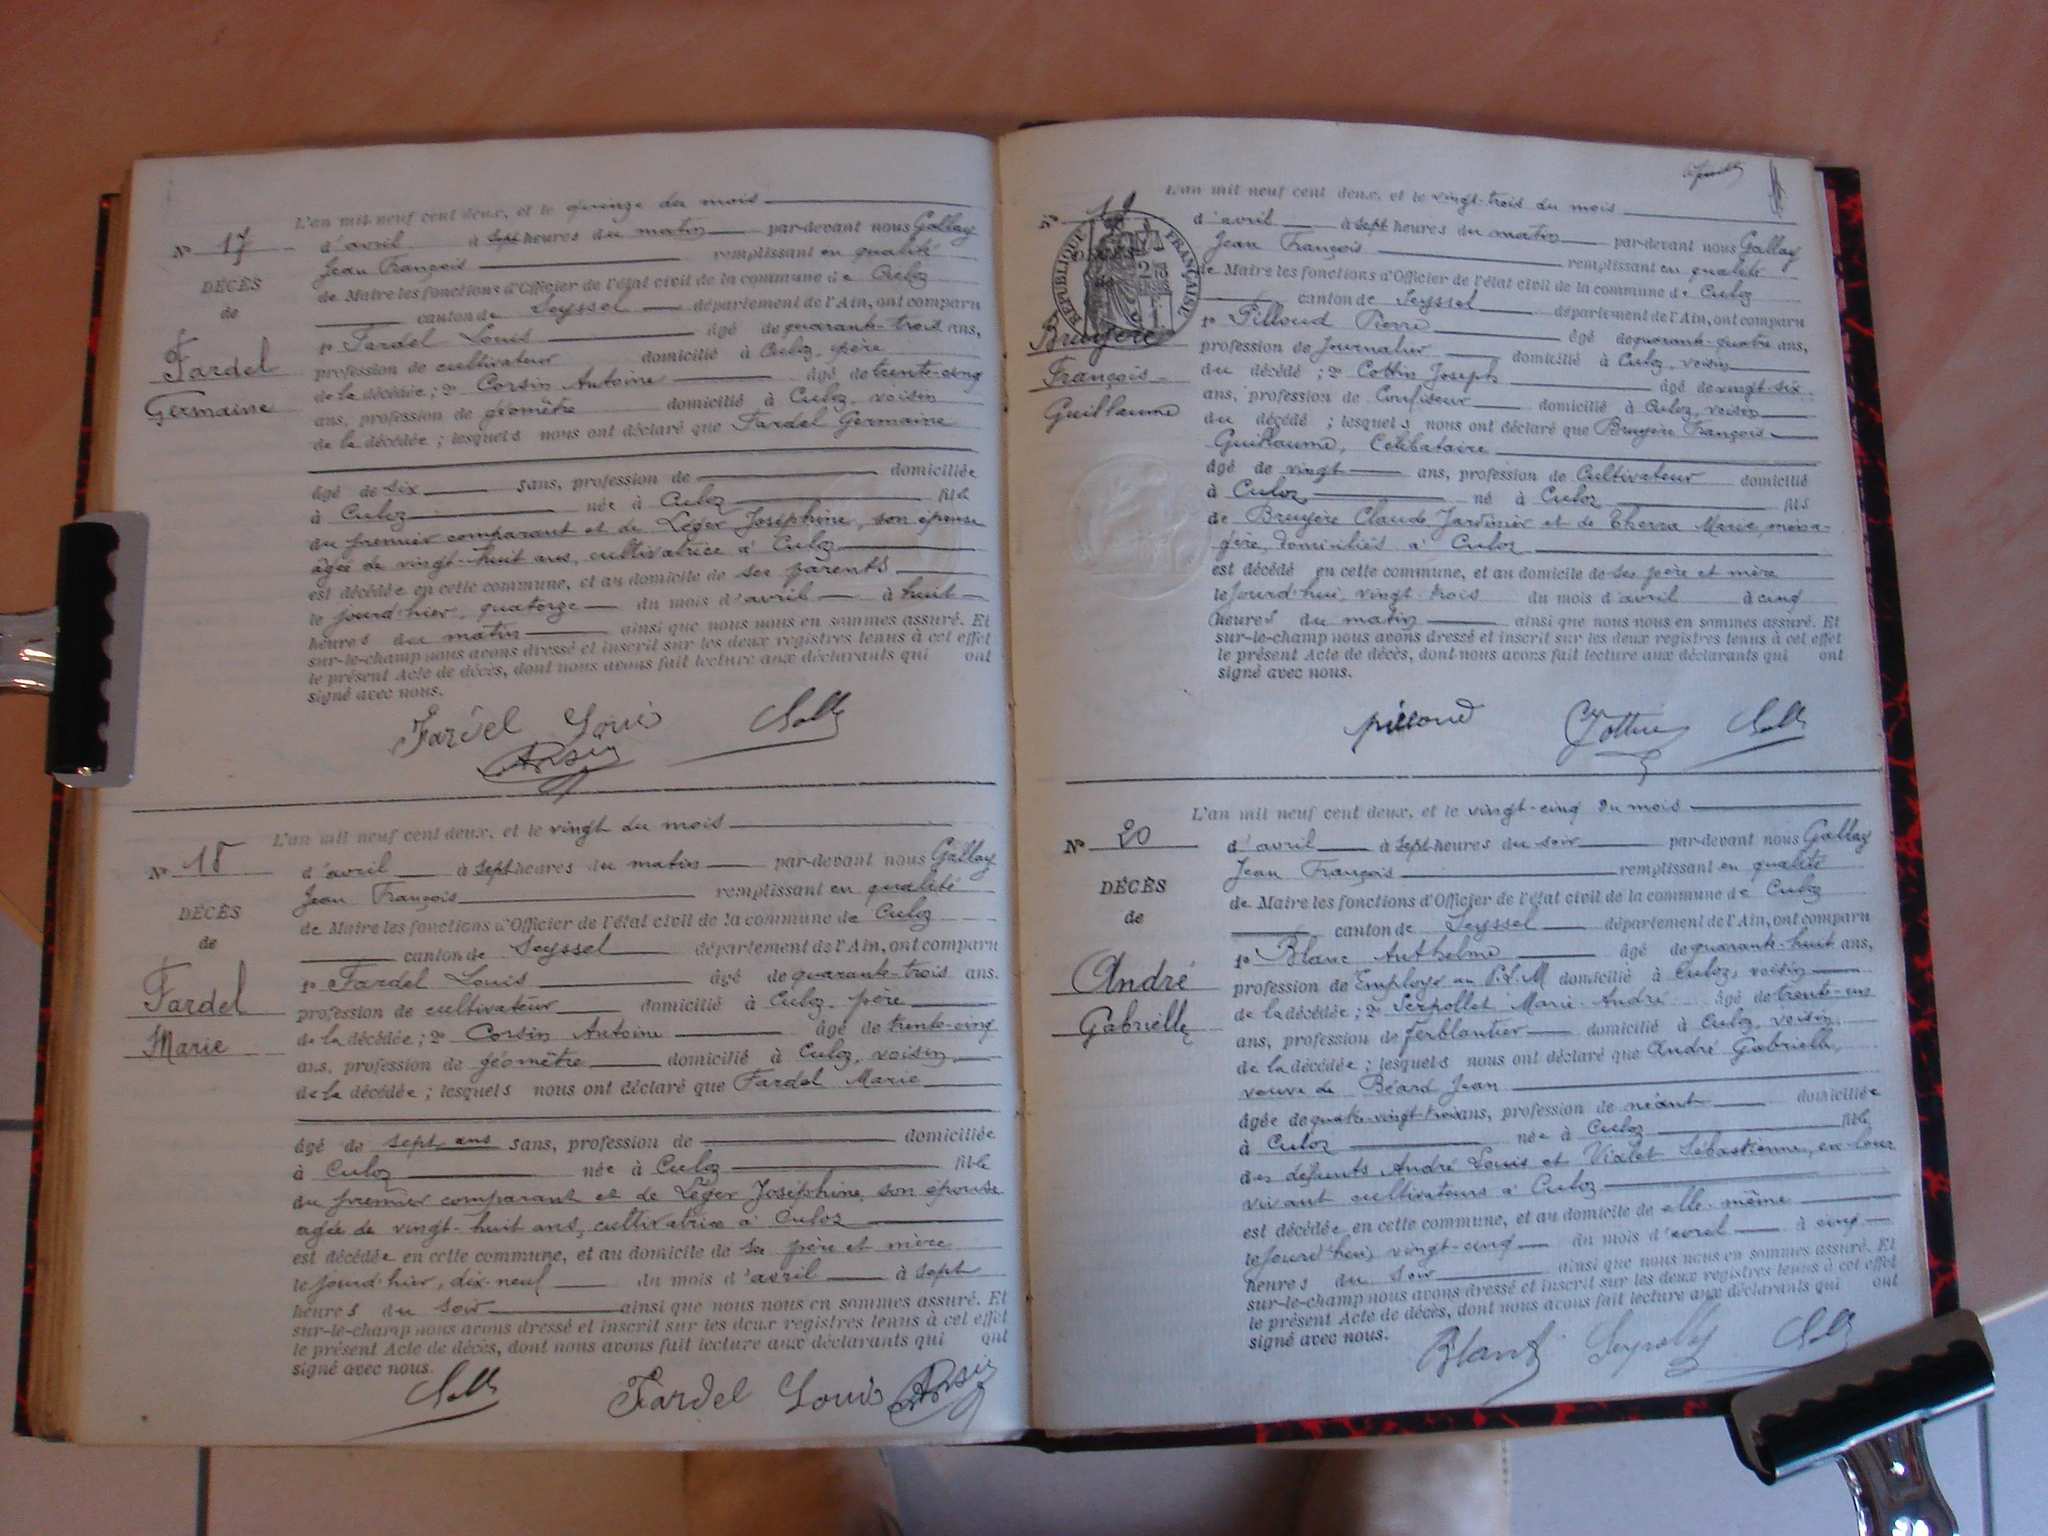 L'an mil neuf cent deux, et le quinze du mois
N° 17
d'avril à sept heures du matin par-devant nous Gallay
Jean François remplissant en qualité
DÉCÈS
de Maire les fonctions d'Officier de l'état civil de la commune de Culoz
de
canton de Seyssel département de l'Ain, ont comparu
Fardel
1° Fardel Louis âgé de quarante-trois ans,
profession de cultivateur domicilié à Culoz, père
Germaine
de la décédée ; 2° Corsin Antoine âgé de trente-cinq
ans, profession de géomètre domicilié à Culoz, voisin
de la décédée ; lesquels nous ont déclaré que Fardel Germaine
âgé de six ans, profession de domiciliée
à Culoz née à Culoz fille
du premier comparant et de Léger Joséphine, son épouse
âgée de vingt-huit ans, cultivatrice à Culoz
est décédée en cette commune, et au domicile de ses parents
le jourd'hier, quatorze du mois d'avril à huit
heures du matin ainsi que nous nous en sommes assuré. Et
sur-le-champ nous avons dressé et inscrit sur les deux registres tenus à cet effet
le présent Acte de décès, dont nous avons fait lecture aux déclarants qui ont
signé avec nous.
Fardel Louis
L'an mil neuf cent deux, et le vingt du mois
N° 18
d'avril à sept heures du matin par-devant nous Gallay
Jean François remplissant en qualité
DÉCÈS
de Maire les fonctions d'Officier de l'état civil de la commune de Culoz
de
canton de Seyssel département de l'Ain, ont comparu
Fardel
1° Fardel Louis âgé de quarante-trois ans.
profession de cultivateur domicilié à Culoz, père
Marie
de la décédée ; 2° Corsin Antoine âgé de trente-cinq
ans, profession de géomètre domicilié à Culoz, voisin
de la décédée ; lesquels nous ont déclaré que Fardel Marie
âgé de sept ans sans, profession de domiciliée
à Culoz née à Culoz fille
du premier comparant et de Léger Joséphine, son épouse
agée de vingt-huit ans, cultivatrice à Culoz
est décédée en cette commune, et au domicile de ses père et mère
le jourd'hier, dix-neuf du mois d'avril à sept
heures du soir ainsi que nous nous en sommes assuré. Et
sur-le-champ nous avons dressé et inscrit sur les deux registres tenus à cet effet
le présent Acte de décès, dont nous avons fait lecture aux déclarants qui ont
signé avec nous.
Fardel Louis
L'an mil neuf cent deux, et le vingt-trois du mois
N° 19
d'avril à sept heures du matin par-devant nous Gallay
Jean François remplissant en qualité
RÉPUBLIQUE FRANÇAISE
de Maire les fonctions d'Officier de l'état civil de la commune de Culoz
canton de Seyssel département de l'Ain, ont comparu
Bruyère
1° Pilloud Pierre âgé de quarante-quatre ans,
profession de Journalier domicilié à Culoz, voisin
François
du décédé ; 2° Cottin Joseph âgé de vingt-six
Guillaume
ans, profession de Confiseur domicilié à Culoz, voisin
du décédé ; lesquels nous ont déclaré que Bruyère François
Guillaume, Célibataire
âgé de vingt ans, profession de Cultivateur domicilié
à Culoz né à Culoz fils
de Bruyère Claude, Jardinier et de Marie, ména-
gère, domiciliés à Culoz
est décédé en cette commune, et au domicile de ses père et mère
le jourd'hui, vingt-trois du mois d'avril à cinq
heures du matin ainsi que nous nous en sommes assuré. Et
sur-le-champ nous avons dressé et inscrit sur les deux registres tenus à cet effet
le présent Acte de décès, dont nous avons fait lecture aux déclarants qui ont
signé avec nous.
pilloud Cottin
L'an mil neuf cent deux, et le vingt-cinq du mois
N° 20
d'avril à sept heures du soir par-devant nous Gallay
Jean François remplissant en qualité
DÉCÈS
de Maire les fonctions d'Officier de l'état civil de la commune de Culoz
de
canton de Seyssel département de l'Ain, ont comparu
André
1° Blanc Anthelme âgé de quarante-huit ans,
profession de Employé au P.L.M domicilié à Culoz, voisin
Gabrielle
de la décédée ; 2° Serpollet Marie-André âgé de trente-un
ans, profession de ferblantier domicilié à Culoz, voisin
de la décédée ; lesquels nous ont déclaré que André Gabrielle,
veuve de Béard Jean
âgée de quatre-vingt-trois ans, profession de néant domiciliée
à Culoz née à Culoz fille
des défunts André Louis et Vialet Sébastienne, en leur
vivant cultivateurs à Culoz
est décédée en cette commune, et au domicile de elle-même
le jourd'hui, vingt-cinq du mois d'avril à cinq
heures du soir ainsi que nous nous en sommes assuré. Et
sur-le-champ nous avons dressé et inscrit sur les deux registres tenus à cet effet
le présent Acte de décès, dont nous avons fait lecture aux déclarants qui ont
signé avec nous.
Blanc Serpollet